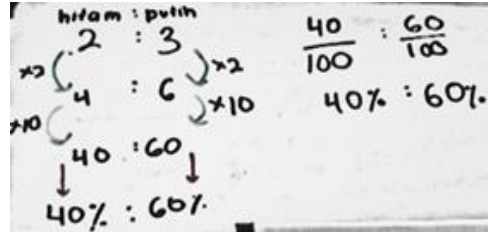 hitam : putih
2 : 3
×2 ×2
4 : 6
×10 ×10
40 : 60
40% : 60%
40/100 : 60/100
40% : 60%